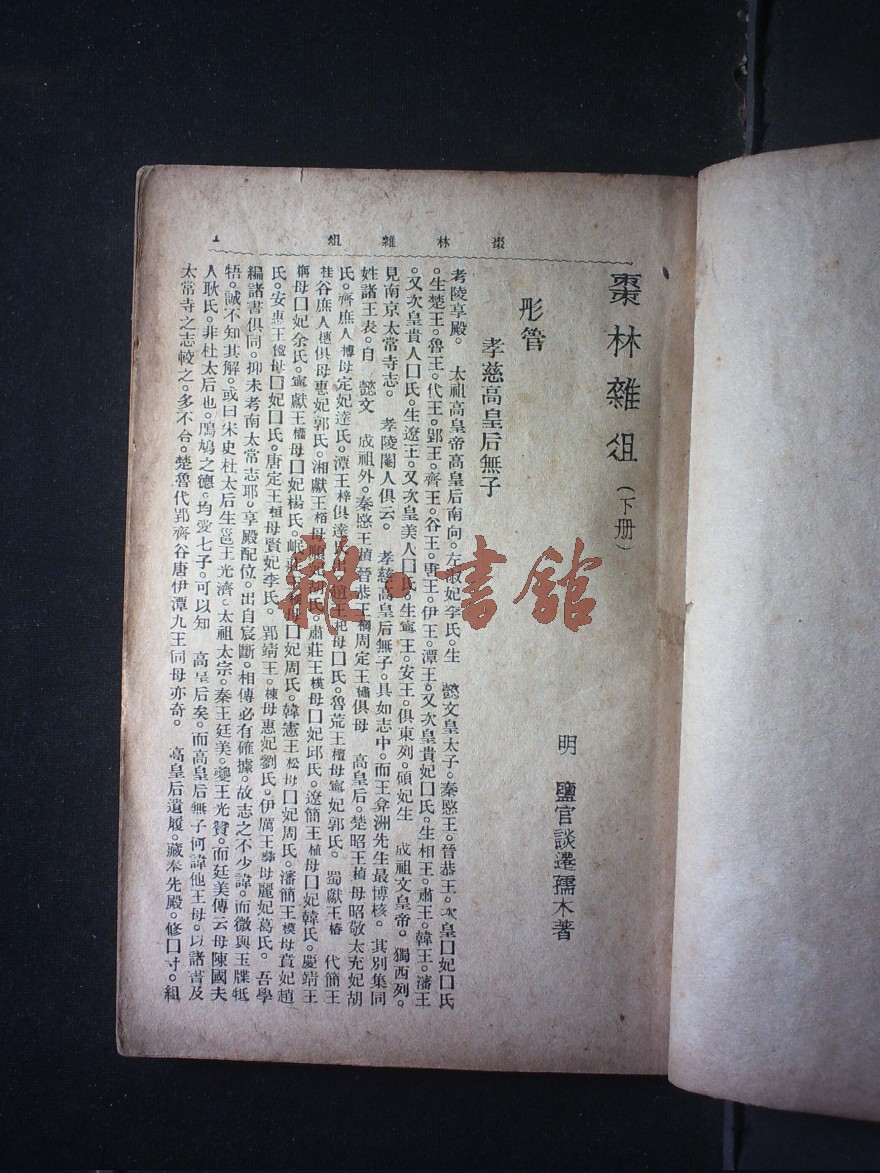 棗林雜俎
一
棗林雜俎（下册）
明　鹽官談遷孺木著
彤管
孝慈高皇后無子
考陵享殿。　太祖高皇帝高皇后南向。左淑妃李氏。生　懿文皇太子。秦愍王。晉恭王。次皇囗妃囗氏
。生楚王。魯王。代王。郢王。齊王。谷王。唐王。伊王。潭王。又次皇貴妃囗氏。生相王。肅王。韓王。瀋王
。又次皇貴人囗氏。生遼王。又次皇美人囗氏。生寧王。安王。俱東列。碩妃生　成祖文皇帝。獨西列。
見南京太常寺志。　孝陵閹人俱云。　孝慈高皇后無子。具如志中。而王弇洲先生最博核。其別集同
姓諸王表。自　懿文　成祖外。秦愍王樉晉恭王棡周定王橚俱母　高皇后。楚昭王楨母昭敬太充妃胡
氏。齊庶人榑母定妃達氏。潭王梓俱達氏出。趙王杞母囗氏。魯荒王檀母寧妃郭氏。　蜀獻王椿　代簡王
桂谷庶人橞俱母惠妃郭氏。湘獻王栢母順妃胡氏。肅莊王楧母囗妃邱氏。遼簡王植母囗妃韓氏。慶靖王
㮵母囗妃余氏。寧獻王權母囗妃楊氏。岷莊王母囗妃周氏。韓憲王松母囗妃周氏。瀋簡王模母貴妃趙
氏。安惠王楹母囗妃囗氏。唐定王桱母賢妃李氏。郢靖王。棟母惠妃劉氏。伊厲王㰘母麗妃葛氏。　吾學
編諸書俱同。抑未考南太常志耶。享殿配位。出自宸斷。相傳必有確據。故志之不少諱。而微與玉牒牴
牾。誠不知其解。或曰宋史杜太后生邕王光濟。太祖太宗。秦王廷美。夔王光贊。而廷美傳云母陳國夫
人耿氏。非杜太后也。鳲鳩之德。均愛七子。可以知　高皇后矣。而高皇后無子何諱他王母。以諸書及
太常寺之志較之。多不合。楚魯代郢齊谷唐伊潭九王同母亦奇。　高皇后遺履。藏奉先殿。修囗寸。組
龍·書館